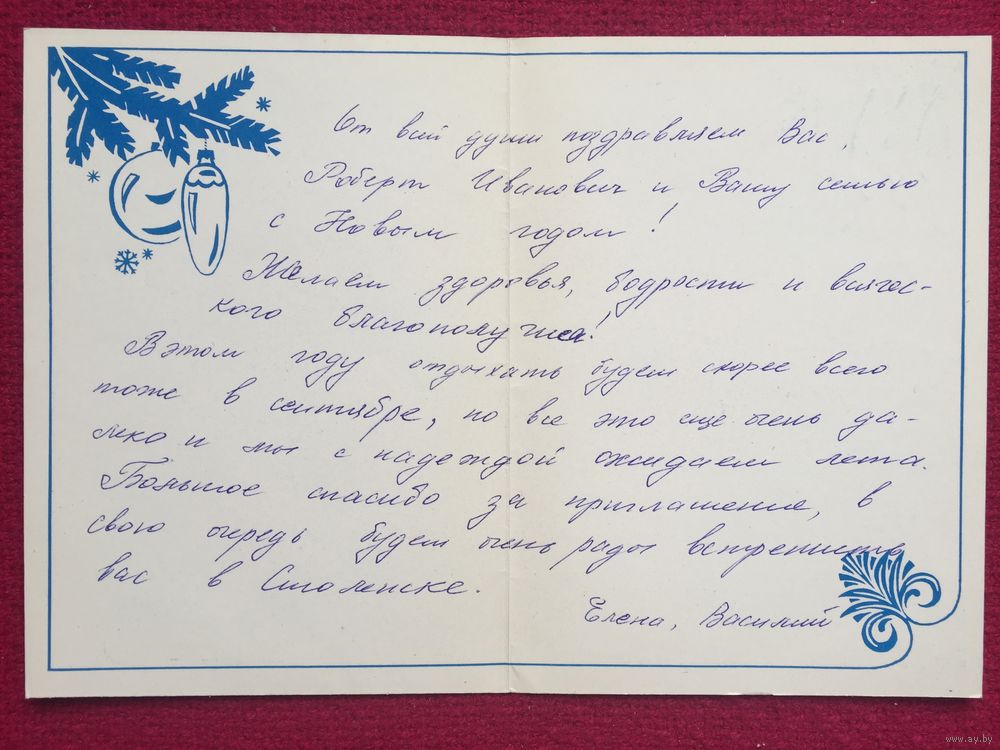 От всей души поздравляем Вас,
Роберт Иванович и Вашу семью
с Новым годом!
Желаем здоровья, бодрости и вся­чес-
кого благополучия!
В этом году отдыхать будем скорее всего
тоже в сентябре, но все это еще очень да-
леко и мы с надеждой ожидаем лета.
Большое спасибо за приглашение, в
свою очередь будем очень рады встретить
вас в Смоленске.
Елена, Василий
www.ay.by